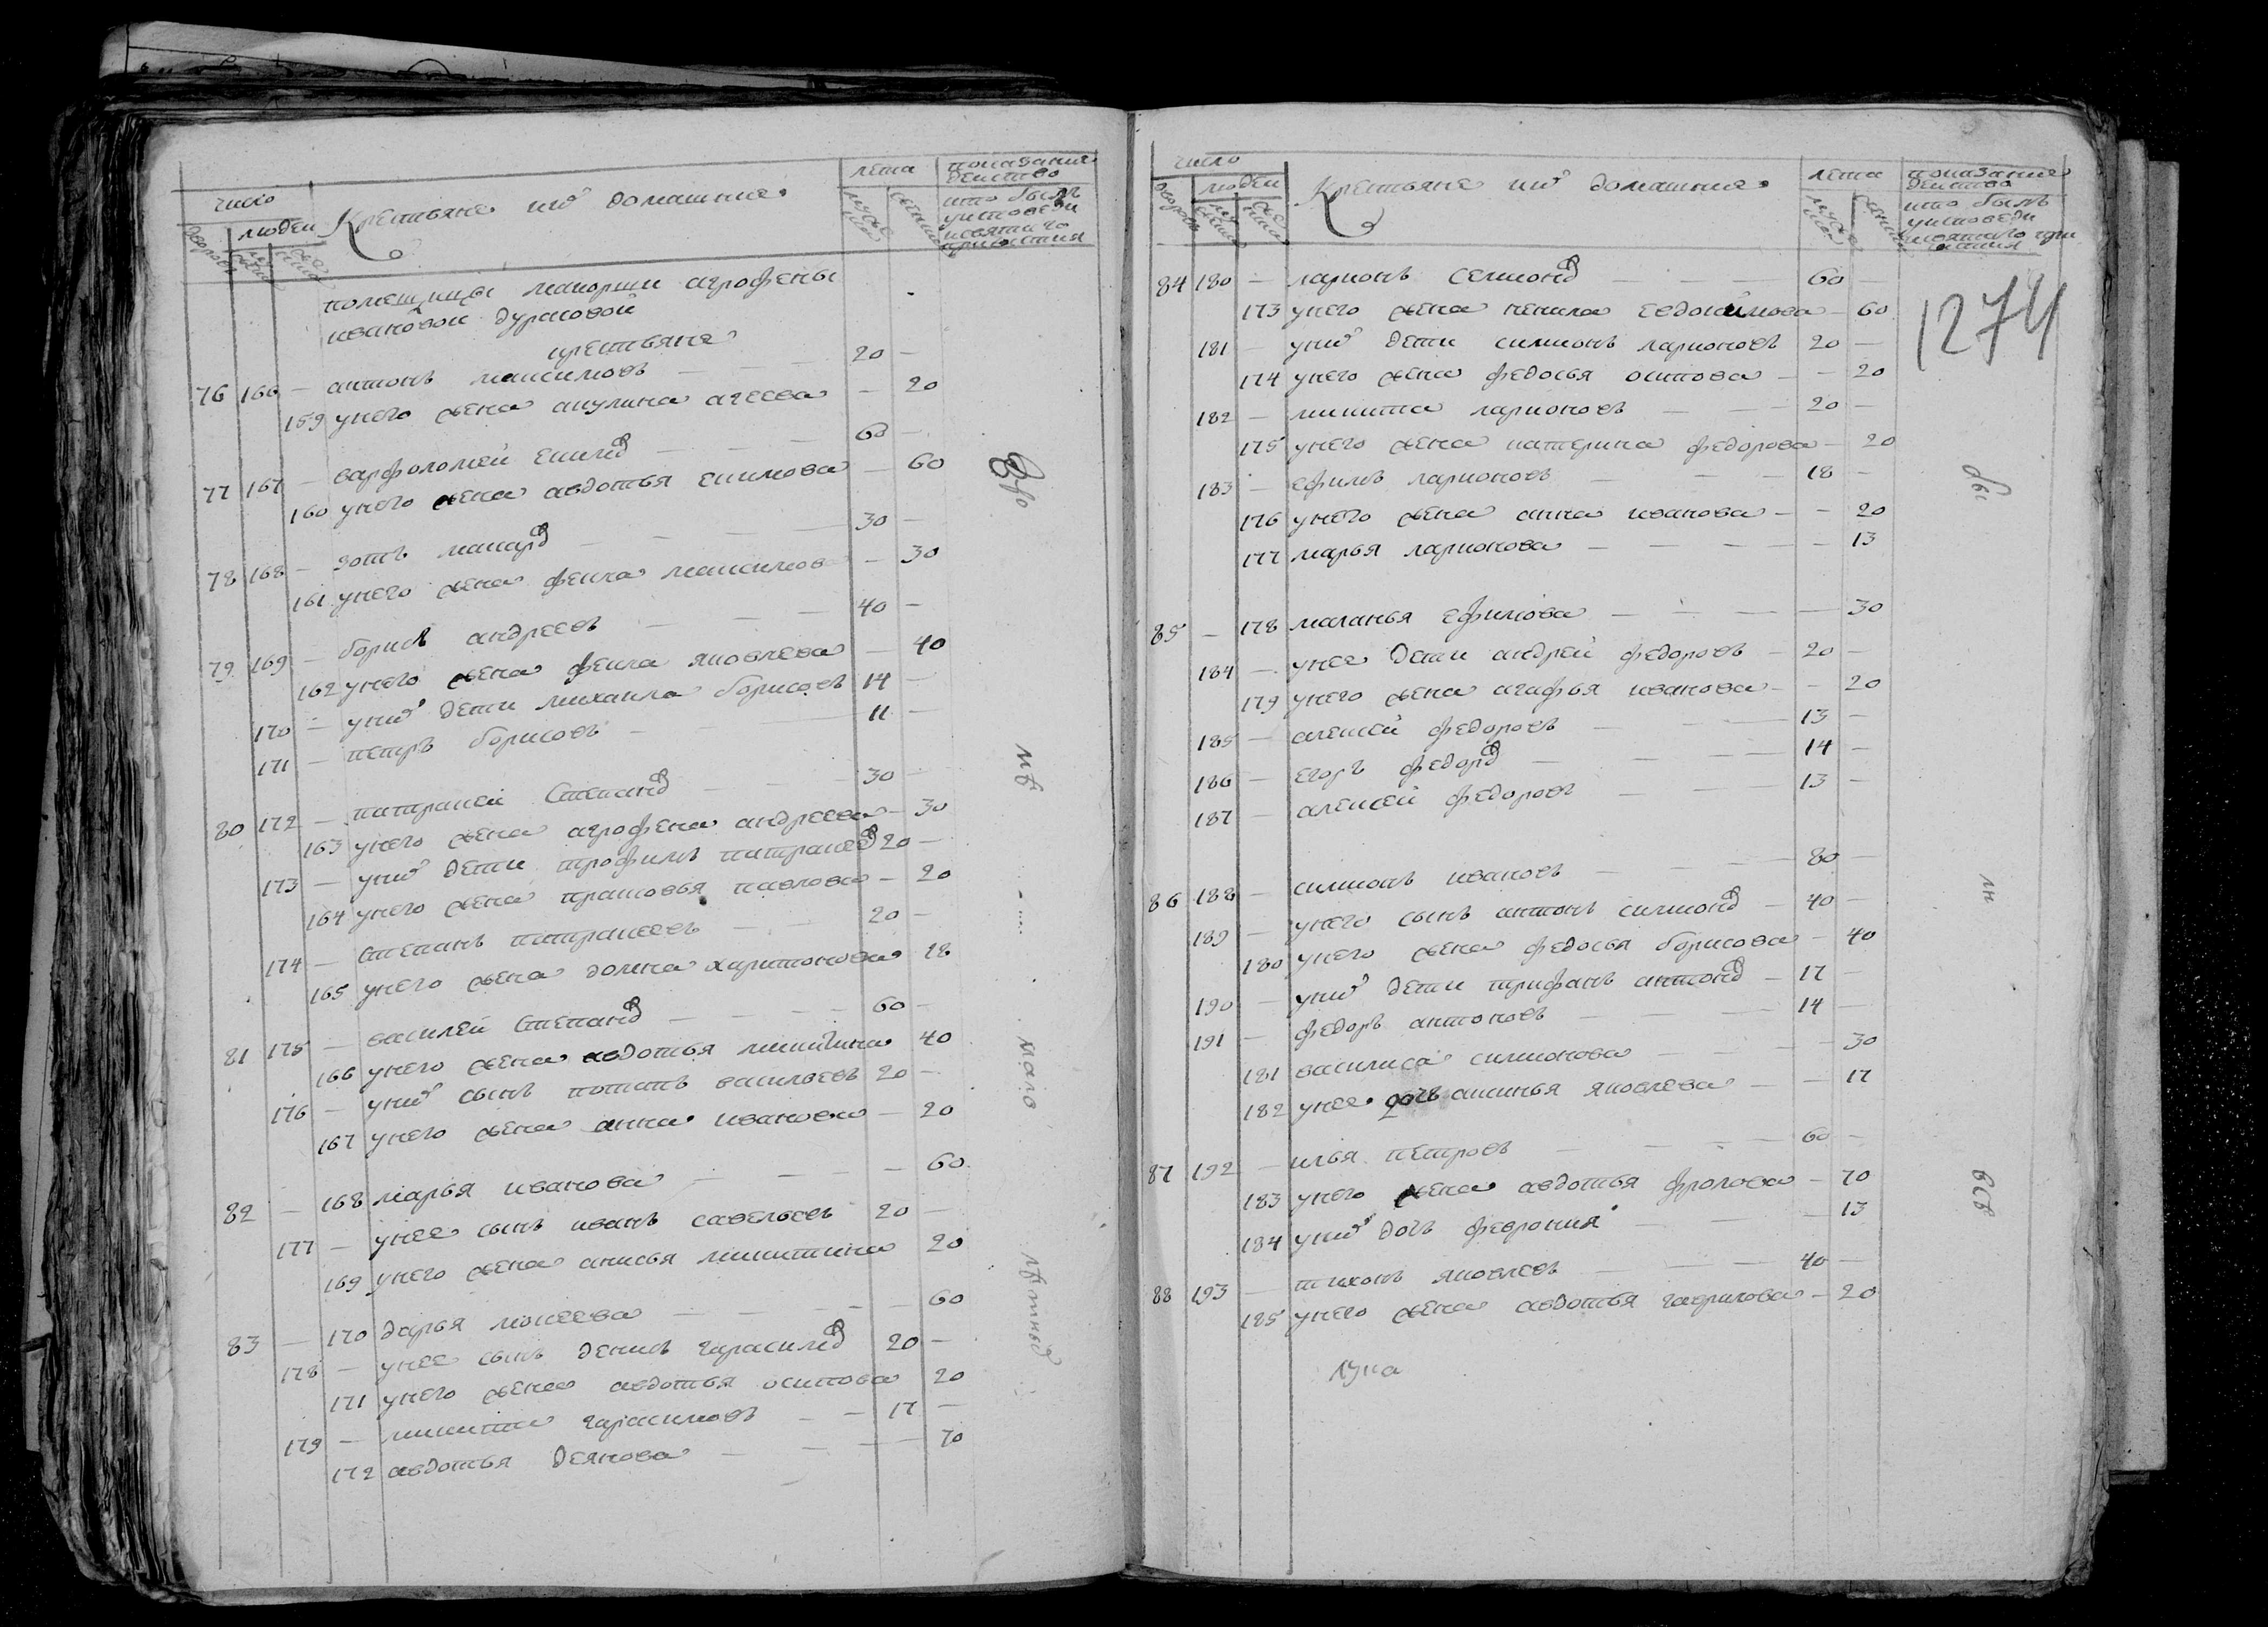 число
людеи
дворовъ
Крестьяне ихъ домашние
лета
показание действо
кто былъ
у исповеди
и святаго
причастия
помещицы маиорши агрофены
ивановои дурновои
крестьяне
76 166 — антонъ максимовъ — 20 —
159 у него жена акулина агеева — 20
77 167 — варфоломеи екимо 60 —
160 у него жена авдотья екимова — 60
78 168 — зотъ макаро 30 —
161 у него жена фекла максимов — 30
79 169 — борисъ андреевъ — 40 —
162 у него жена фекла яковлева — 40
170 — у них дети михаила борисовъ 14 —
171 — петръ борисовъ — 11 —
80 172 — патракеи степано 30 —
163 у него жена агрофена андреева — 30
173 — у них дети трофимъ патракее 20 —
164 у него жена прасковья павлова — 20
174 — степанъ патракеевъ 20 —
165 у него жена домна харитонова 18
81 175 — василеи степано 60 —
166 у него жена авдотья никитина 40
176 — у них сынъ потапъ васильевъ 20 —
167 у него жена анна иванова — 20
82 — 168 марья иванова — 60
177 — у нее сынъ иванъ савельевъ 20 —
169 у него жена анисья никитина 20
83 — 170 дарья моисеева — 60
178 — у нее сынъ денисъ гарасимо 20 —
171 у него жена авдотья осипова 20
179 — никита гарасимовъ — 17 —
172 авдотья деянова — 70
мало
число
людеи
дворовъ
Крестьяне ихъ домашние
лета
показание действо
кто былъ
у исповеди
и святаго при
частия
1274
84 180 — ларионъ семионо 60 —
173 у него жена ненила евдокимова — 60
181 — у них дети симионъ ларионовъ 20 —
174 у него жена федосья осипова — 20
182 — никита ларионовъ — 20 —
175 у него жена катерина федорова — 20
183 — ефимъ ларионовъ — 18 —
176 у него жена анна иванова — 20
177 марья ларионова — 13
85 — 178 маланья ефимова — 30
184 — у нее дети андреи федоровъ — 20 —
179 у него жена агафья иванова — 20
185 — алексеи федоровъ — 13 —
186 — егоръ федоро 14 —
187 — алексеи федоровъ — 13 —
86 188 — симионъ ивановъ — 80 —
189 — у него сынъ антонъ симионо — 40 —
180 у него жена федосья борисова — 40
190 — у них дети трифанъ антоно — 17 —
191 — федоръ антоновъ — 14 —
181 василиса симионова — 30
182 у нее дочь аксинья яковлева — 17
87 192 — илья петровъ — 60 —
183 у него жена авдотья фролова — 70
184 у них дочь феврония — 13
88 193 — тихонъ яковлевъ — 40 —
185 у него жена авдотья гаврилова — 20
лука